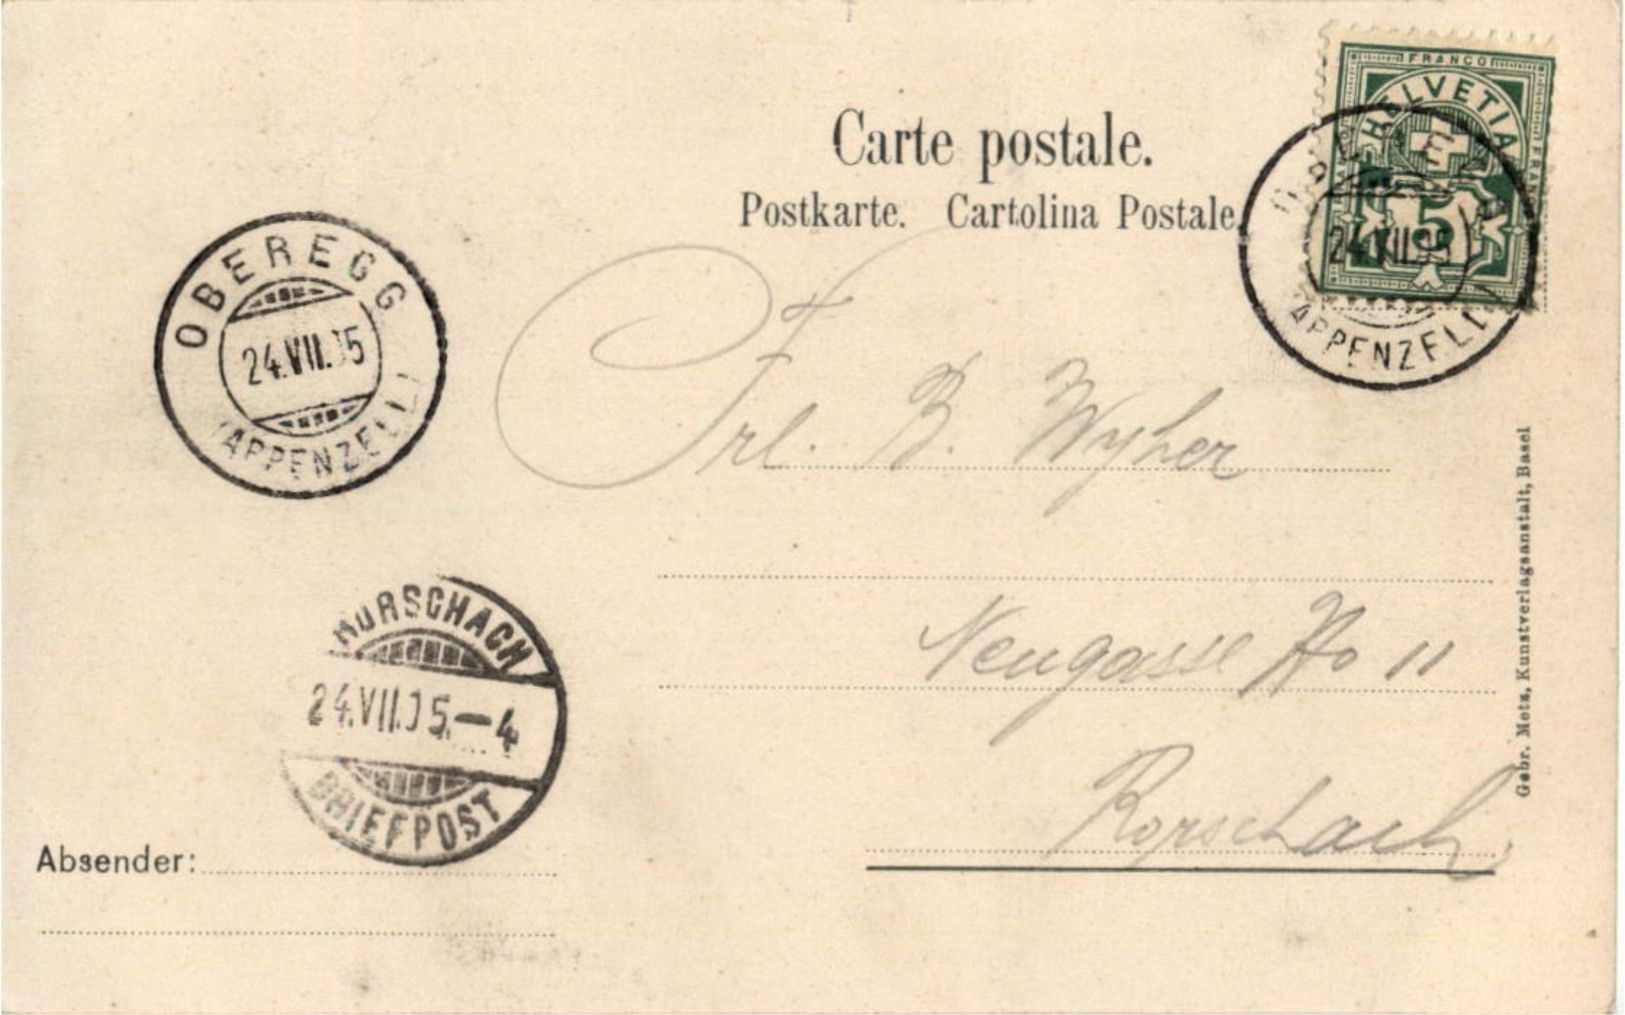 Carte postale.
Postkarte. Cartolina Postale.
FRANCO
HELVETIA
5
24.VII.05
(APPENZELL)
OBEREGG
24.VII.05
(APPENZELL)
Frl. B. Wyher
Neugasse No 11
Rorschach.
RORSCHACH
24.VII.05.–4
BRIEFPOST
Absender:
Gebr. Metz, Kunstverlagsanstalt, Basel